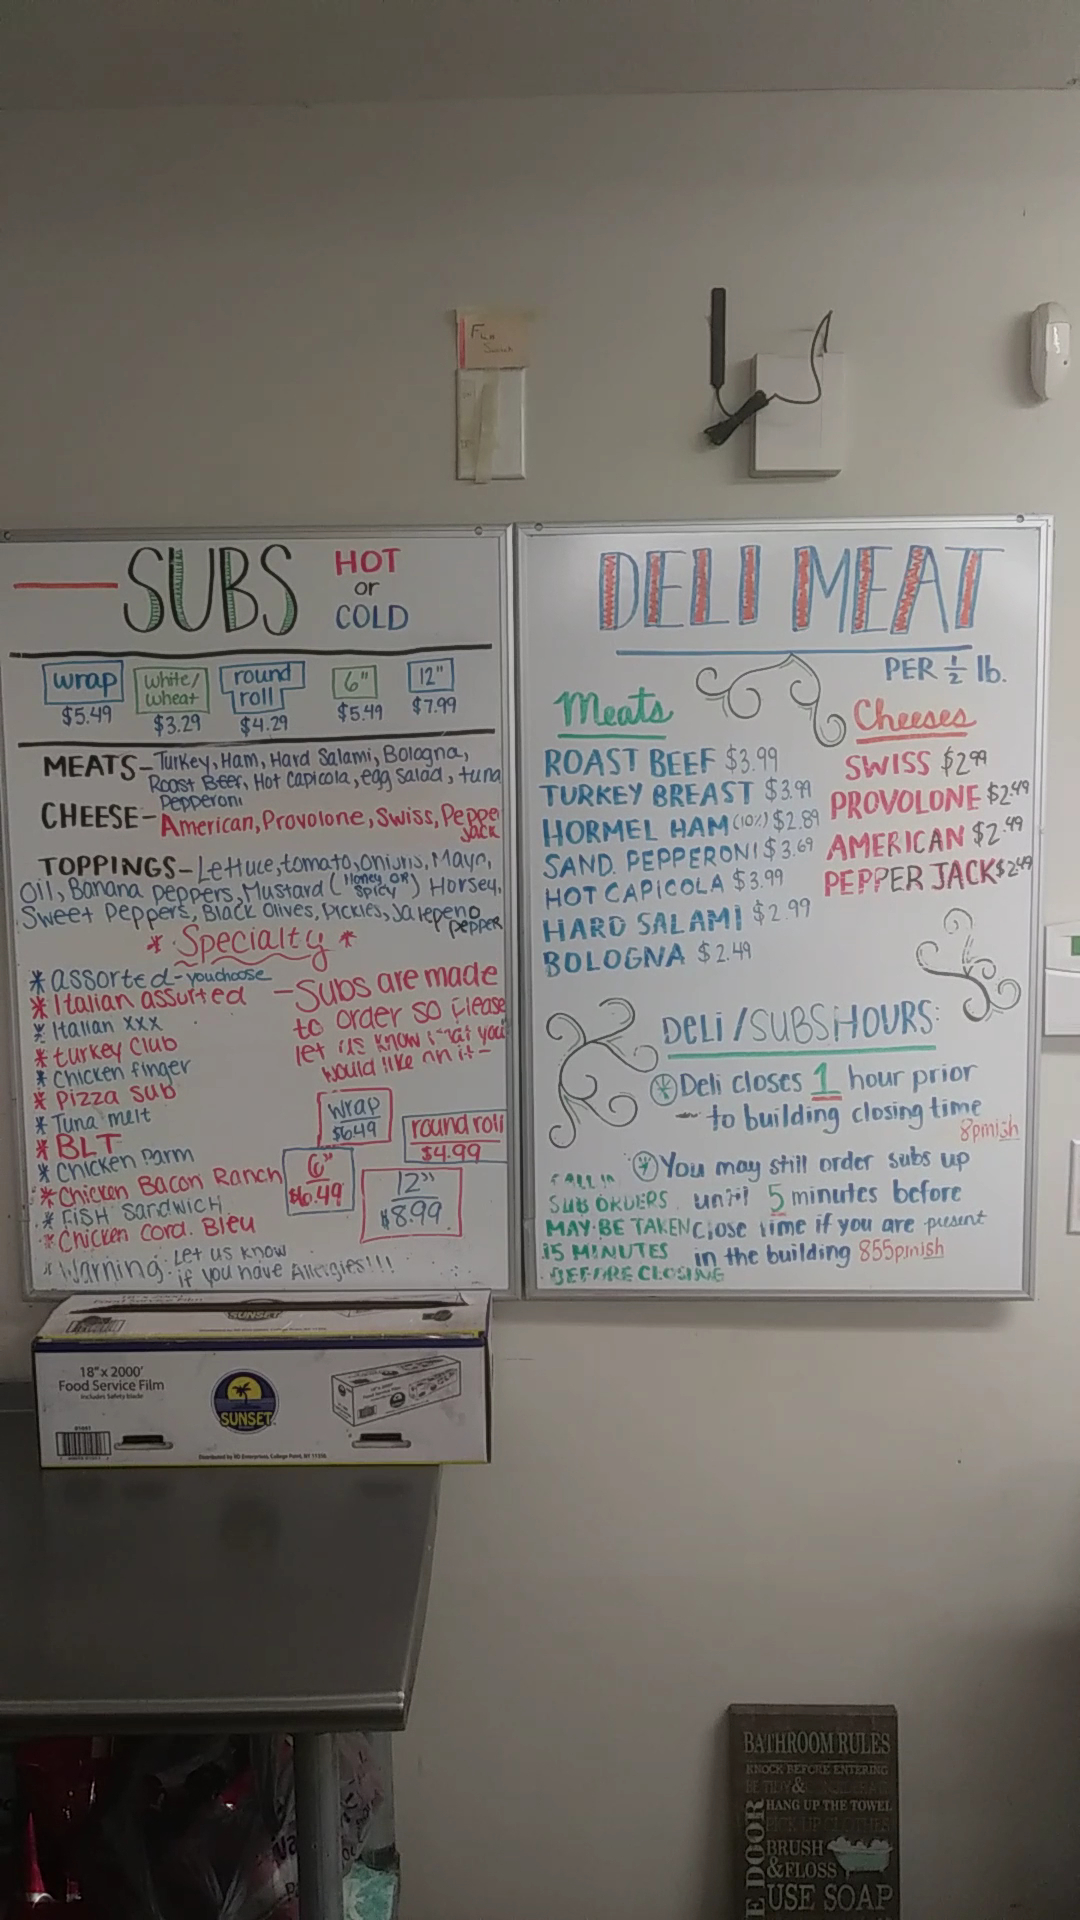 Fan
SUBS HOT
or
COLD
wrap white/ round 6" 12"
wheat roll
$5.49 $3.29 $4.29 $5.49 $7.99
MEATS- Turkey, Ham, Hard Salami, Bologna,
Roast Beef, Hot Capicola, egg salad, tuna
Pepperoni
CHEESE- American, Provolone, Swiss, Pepper
Jack
TOPPINGS- Lettuce, tomato, onions, Mayo,
Oil, Banana peppers, Mustard (Honey OR Spicy) Horsey,
Sweet Peppers, Black Olives, Pickles, Jalepeno
pepper
* Specialty *
* assorted - you choose
* Italian assorted
* Italian xxx
* turkey club
* Chicken finger
* Pizza sub
* Tuna melt
* BLT
* Chicken parm
* Chicken Bacon Ranch
* FISH Sandwich
* Chicken Cord. Bleu
- Subs are made
to order so please
let us know what you
would like on it -
wrap
$6.49
round roll
$4.99
6"
$6.49
12"
$8.99
* Warning: Let us know
if you have Allergies!!!
DELI MEAT
PER 1/2 lb.
Meats
ROAST BEEF $3.99
TURKEY BREAST $3.99
HORMEL HAM (10%) $2.89
SAND. PEPPERONI $3.69
HOT CAPICOLA $3.99
HARD SALAMI $2.99
BOLOGNA $2.49
Cheeses
SWISS $2.99
PROVOLONE $2.49
AMERICAN $2.49
PEPPER JACK $2.49
DELI/SUBS HOURS:
* Deli closes 1 hour prior
- to building closing time
8pmish
* You may still order subs up
until 5 minutes before
close time if you are present
in the building 855pmish
CALL IN
SUB ORDERS
MAY BE TAKEN
15 MINUTES
BEFORE CLOSING
Food Service Film
SUNSET
18" x 2000'
Food Service Film
Includes Safety Blade
SUNSET
Distributed by RD Enterprises, College Point, NY 11356
BATHROOM RULES
KNOCK BEFORE ENTERING
BE TIDY &
HANG UP THE TOWEL
PICK UP CLOTHES
BRUSH
& FLOSS
USE SOAP
E DOOR